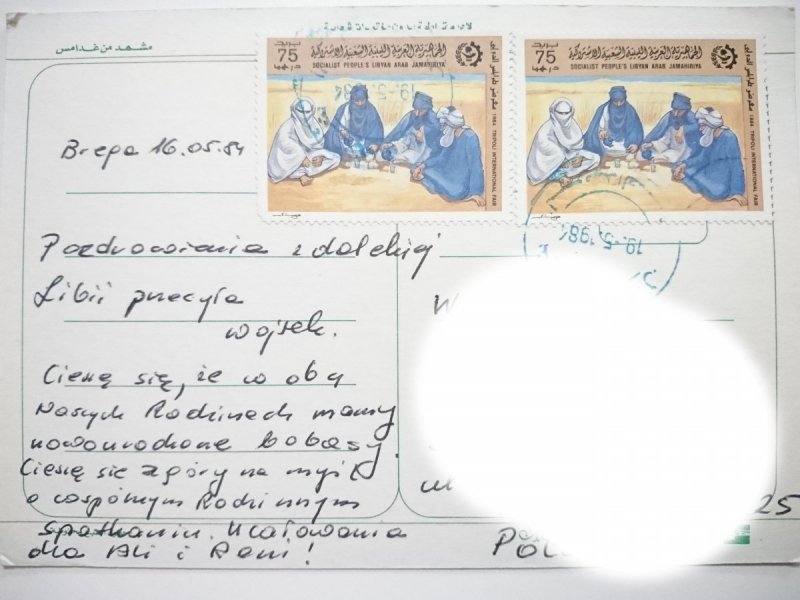 مشهد من غدامس
75
الجماهيرية العربية الليبية الشعبية الاشتراكية
SOCIALIST PEOPLE'S LIBYAN ARAB JAMAHIRIYA
1984 TRIPOLI INTERNATIONAL FAIR
75
الجماهيرية العربية الليبية الشعبية الاشتراكية
SOCIALIST PEOPLE'S LIBYAN ARAB JAMAHIRIYA
1984 TRIPOLI INTERNATIONAL FAIR
19.5.984
19.5.1984
Brega 16.05.84
Pozdrowienia z dalekiej
Libii przesyła
Wojtek.
Cieszę się, że w obu
Naszych Rodzinach mamy
nowourodzone bobasy.
Cieszę się z góry na myśl
o wspólnym Rodzinnym
spotkaniu. Ucałowania
dla Ali i Reni!
25